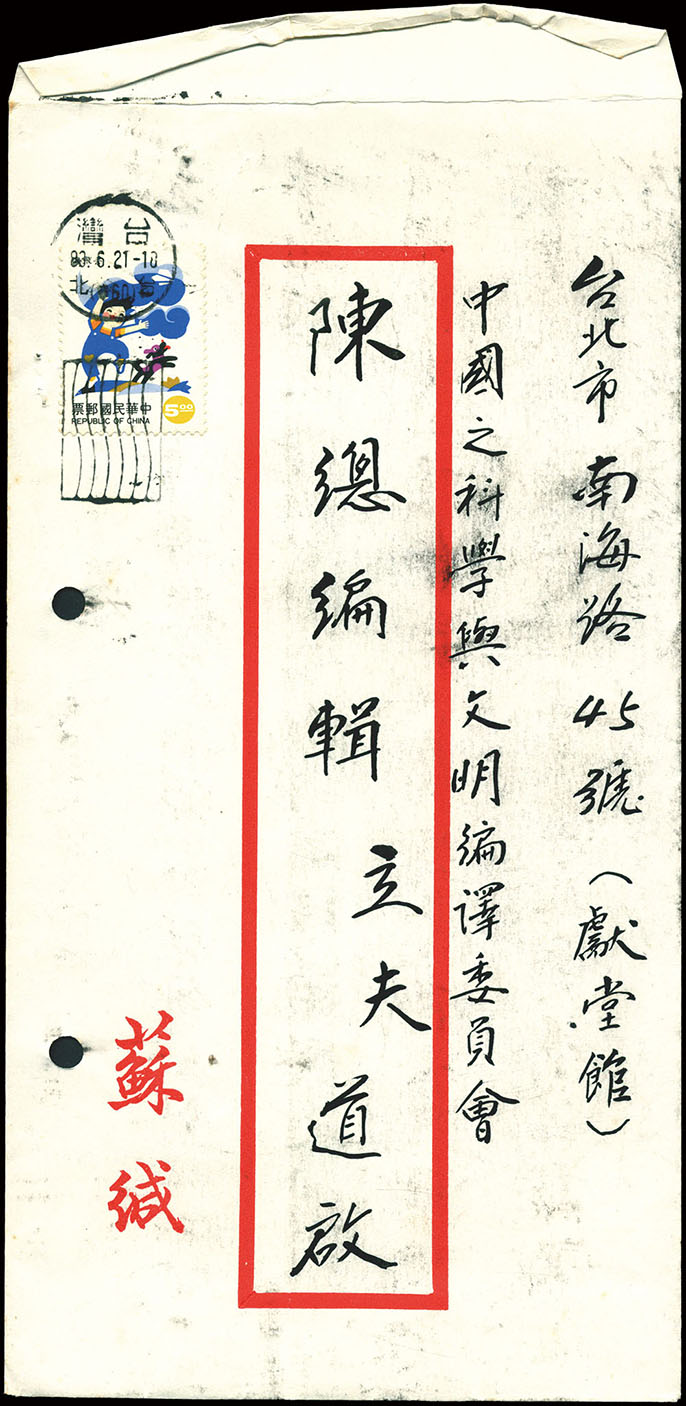 台北市南海路45號（獻堂館）
中國之科學與文明編譯委員會
陳總編輯立夫道啟
蘇緘
台灣
83.6.21-10
台北
票郵國民華中
REPUBLIC OF CHINA
5.00